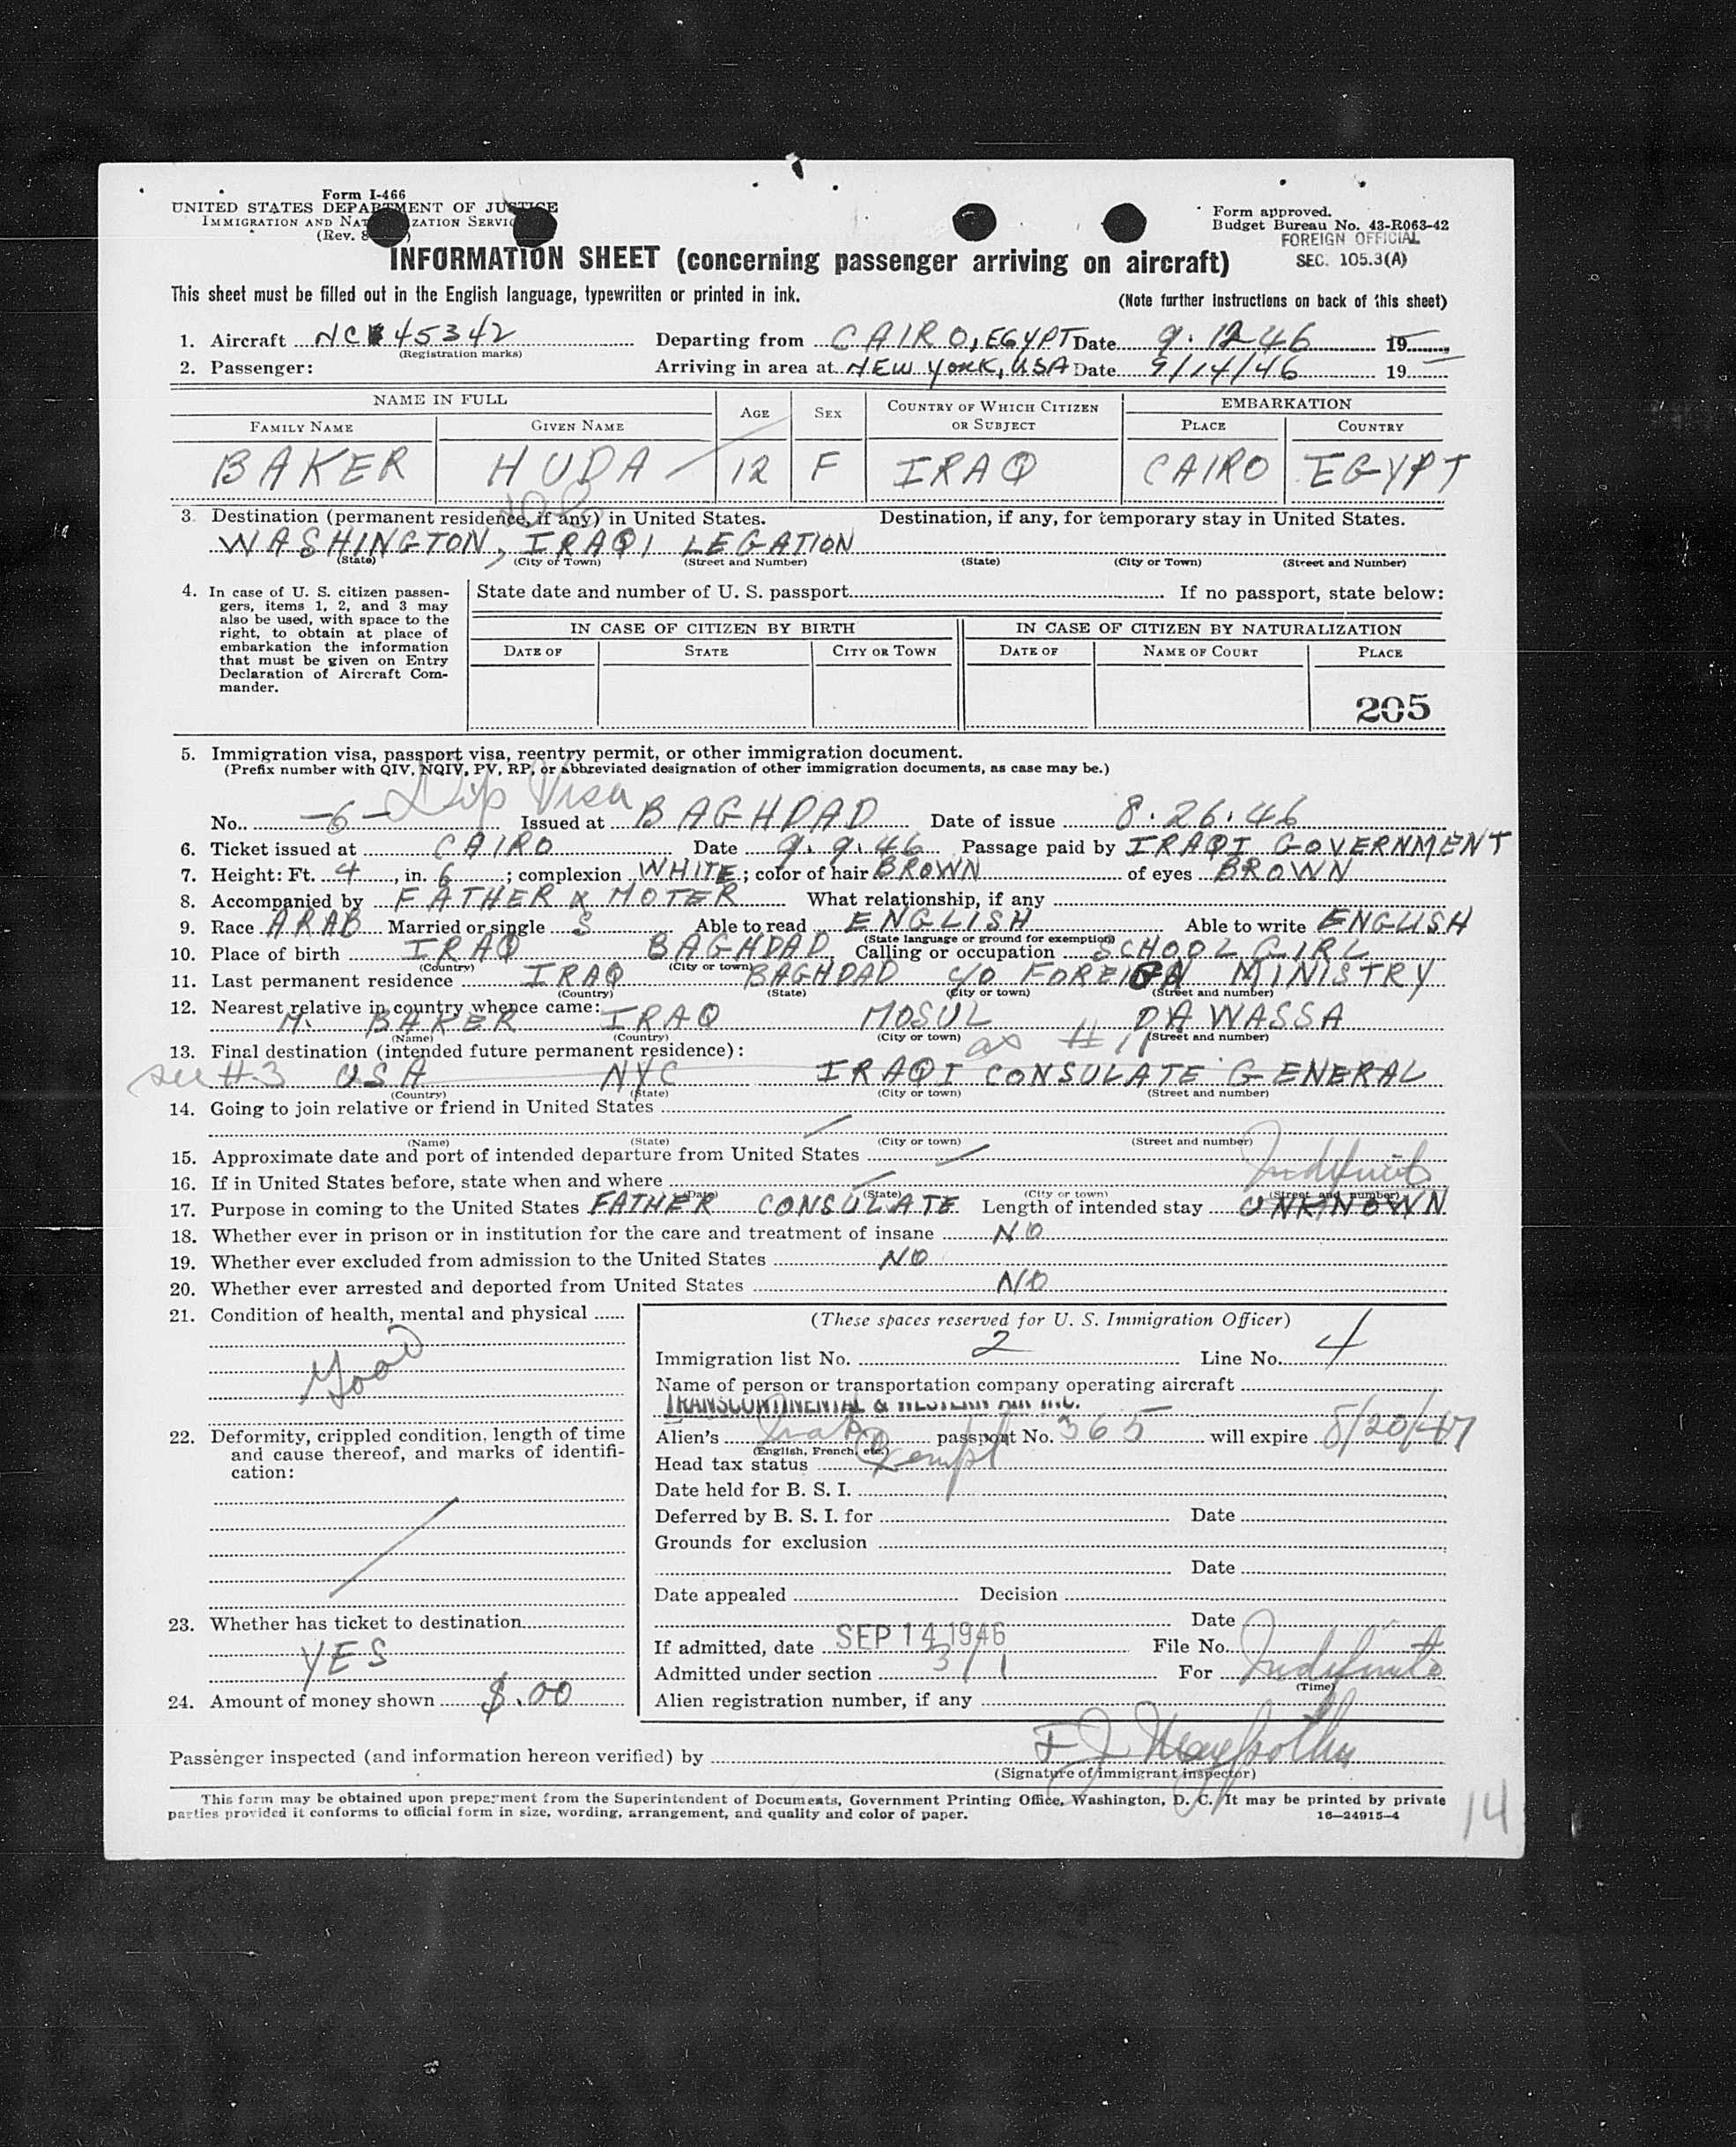 Form I-466
UNITED STATES DEPARTMENT OF JUSTICE
IMMIGRATION AND NATURALIZATION SERVICE
(Rev. 8
Form approved.
Budget Bureau No. 43-R063-42
FOREIGN OFFICIAL
SEC. 105.3(A)
INFORMATION SHEET (concerning passenger arriving on aircraft)
This sheet must be filled out in the English language, typewritten or printed in ink. (Note further instructions on back of this sheet)
1. Aircraft NC 45342 Departing from CAIRO, EGYPT Date 9.12.46 19
(Registration marks)
2. Passenger: Arriving in area at NEW YORK, USA Date 9/14/46 19
NAME IN FULL AGE SEX COUNTRY OF WHICH CITIZEN OR SUBJECT EMBARKATION
FAMILY NAME GIVEN NAME PLACE COUNTRY
BAKER HUDA 12 F IRAQ CAIRO EGYPT
3. Destination (permanent residence, if any) in United States. Destination, if any, for temporary stay in United States.
WASHINGTON, IRAQI LEGATION
(State) (City or Town) (Street and Number) (State) (City or Town) (Street and Number)
4. In case of U. S. citizen passengers, items 1, 2, and 3 may also be used, with space to the right, to obtain at place of embarkation the information that must be given on Entry Declaration of Aircraft Commander.
State date and number of U. S. passport If no passport, state below:
IN CASE OF CITIZEN BY BIRTH IN CASE OF CITIZEN BY NATURALIZATION
DATE OF STATE CITY OR TOWN DATE OF NAME OF COURT PLACE
205
5. Immigration visa, passport visa, reentry permit, or other immigration document.
(Prefix number with QIV, NQIV, PV, RP, or abbreviated designation of other immigration documents, as case may be.)
Dip Visa
No. -6- Issued at BAGHDAD Date of issue 8.26.46
6. Ticket issued at CAIRO Date 9.9.46 Passage paid by IRAQI GOVERNMENT
7. Height: Ft. 4, in. 6; complexion WHITE; color of hair BROWN of eyes BROWN
8. Accompanied by FATHER & MOTER What relationship, if any
9. Race ARAB Married or single S Able to read ENGLISH Able to write ENGLISH
(State language or ground for exemption)
10. Place of birth IRAQ BAGHDAD Calling or occupation SCHOOL GIRL
(Country) (City or town)
11. Last permanent residence IRAQ BAGHDAD c/o FOREIGN MINISTRY
(Country) (State) (City or town) (Street and number)
12. Nearest relative in country whence came:
M. BAKER IRAQ MOSUL DAWASSA
(Name) (Country) (City or town) (Street and number)
13. Final destination (intended future permanent residence): as #11
see #3 USA NYC IRAQI CONSULATE GENERAL
(Country) (State) (City or town) (Street and number)
14. Going to join relative or friend in United States
(Name) (State) (City or town) (Street and number)
15. Approximate date and port of intended departure from United States
16. If in United States before, state when and where Indefinite
(Date) (State) (City or town) (Street and number)
17. Purpose in coming to the United States FATHER CONSULATE Length of intended stay UNKNOWN
18. Whether ever in prison or in institution for the care and treatment of insane NO
19. Whether ever excluded from admission to the United States NO
20. Whether ever arrested and deported from United States NO
21. Condition of health, mental and physical
Good
22. Deformity, crippled condition, length of time and cause thereof, and marks of identification:
23. Whether has ticket to destination
YES
24. Amount of money shown $.00
(These spaces reserved for U. S. Immigration Officer)
Immigration list No. 2 Line No. 4
Name of person or transportation company operating aircraft
TRANSCONTINENTAL & WESTERN AIR INC.
Alien's Iraq passport No. 365 will expire 8/20/47
(English, French, etc.)
Head tax status Exempt
Date held for B. S. I.
Deferred by B. S. I. for Date
Grounds for exclusion
Date
Date appealed Decision
Date
If admitted, date SEP 14 1946 File No.
Admitted under section 3/1 For Indefinite
(Time)
Alien registration number, if any
Passenger inspected (and information hereon verified) by
(Signature of immigrant inspector)
This form may be obtained upon prepayment from the Superintendent of Documents, Government Printing Office, Washington, D. C. It may be printed by private
parties provided it conforms to official form in size, wording, arrangement, and quality and color of paper. 16—24915-4
14